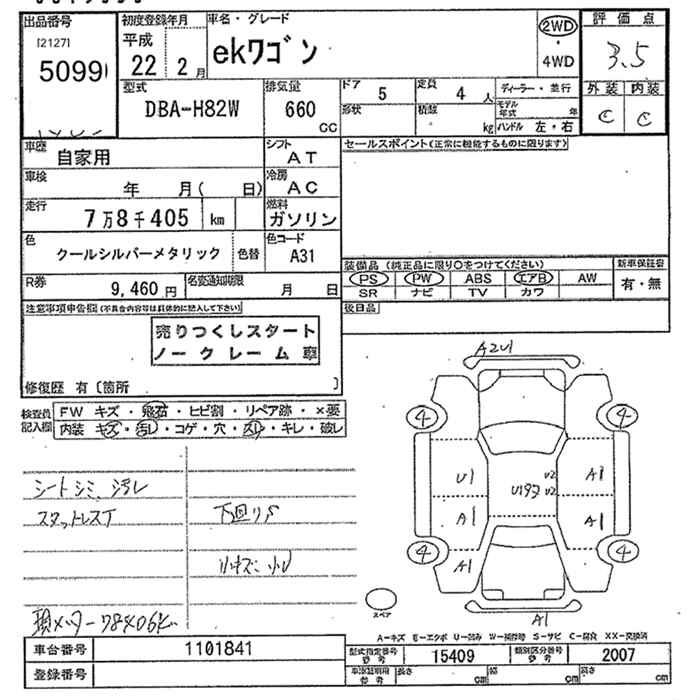 出品番号
[2127]
5099
初度登録年月
平成
22 2 月
車名・グレード
ekワゴン
2WD
・
4WD
評価点
3.5
外装 内装
C C
型式
DBA-H82W
排気量
660
CC
ドア
5
定員
4 人
形状
積載
kg
ディーラー・並行
モデル年式 年
ハンドル 左・右
車歴
自家用
シフト
AT
セールスポイント(正常に機能するものに限ります)
車検
年 月( 日)
冷房
AC
走行
7万8千405 km
燃料
ガソリン
色
クールシルバーメタリック
色替
色コード
A31
装備品(純正品に限り○をつけてください)
新車保証書
PS PW ABS エアB AW
有・無
SR ナビ TV カワ
R券
9,460 円
名変通知期限
月 日
後日品
注意事項申告欄(不具合内容等は具体的に記入して下さい)
売りつくしスタート
ノークレーム車
修復歴 有〔箇所 〕
検査員
記入欄
FW キズ・飛石・ヒビ割・リペア跡・×要
内装 キズ・汚レ・コゲ・穴・スレ・キレ・破レ
シートシミ、汚レ
スタットレスT
下回りS
小キズ、小U
A2U1
4 4
U1 U2 A1
U192 U2
A1 A1
4 4
A1
A1
スペア
A-キズ E-エクボ U-凹み W-補修跡 S-サビ C-腐食 XX-交換済
車台番号
1101841
型式指定番号
参考
15409
類別区分番号
参考
2007
登録番号
車添証明用
参考
長さ cm
幅 cm
高さ cm